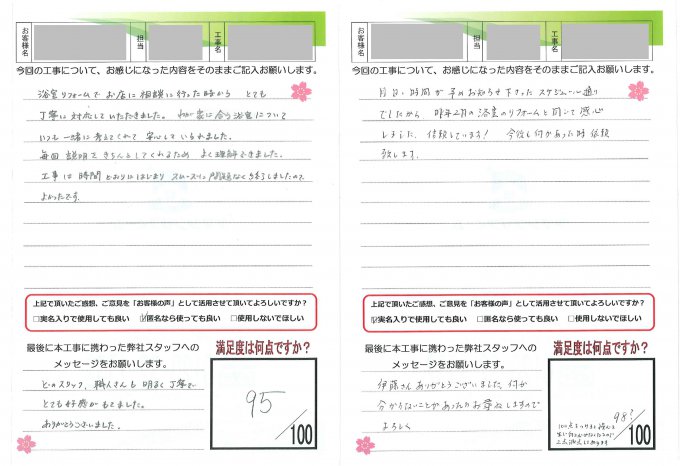 お客様名
担当
工事名
今回の工事について、お感じになった内容をそのままご記入お願いします。
浴室リフォームで お店に相談に行った時から とても
丁寧に対応していただきました。わが家に合う浴室について
いつも一緒に考えてくれて 安心していられました。
毎回 説明できちんとしてくれるため よく理解できました。
工事は 時間どおりにはじまり スムーズに問題なく終了しましたので
よかったです。
上記で頂いたご感想、ご意見を「お客様の声」として活用させて頂いてよろしいですか?
□実名入りで使用しても良い ☑匿名なら使っても良い □使用しないでほしい
最後に本工事に携わった弊社スタッフへの
メッセージをお願いします。
どのスタッフ、職人さんも 明るく丁寧で
とても好感がもてました。
ありがとうございました。
満足度は何点ですか?
95
/100
お客様名
担当
工事名
今回の工事について、お感じになった内容をそのままご記入お願いします。
月日、時間が 早めお知らせ下さった スケジュール通り
でしたから 昨年2月の浴室のリフォームと同じで 感心
しました、信頼しています! 今後も何かあった時 依頼
致します。
上記で頂いたご感想、ご意見を「お客様の声」として活用させて頂いてよろしいですか?
☑実名入りで使用しても良い □匿名なら使っても良い □使用しないでほしい
最後に本工事に携わった弊社スタッフへの
メッセージをお願いします。
伊藤さんありがとうございました、何か
分からないことがあったらお尋ねしますので
よろしく
満足度は何点ですか?
98?
/100